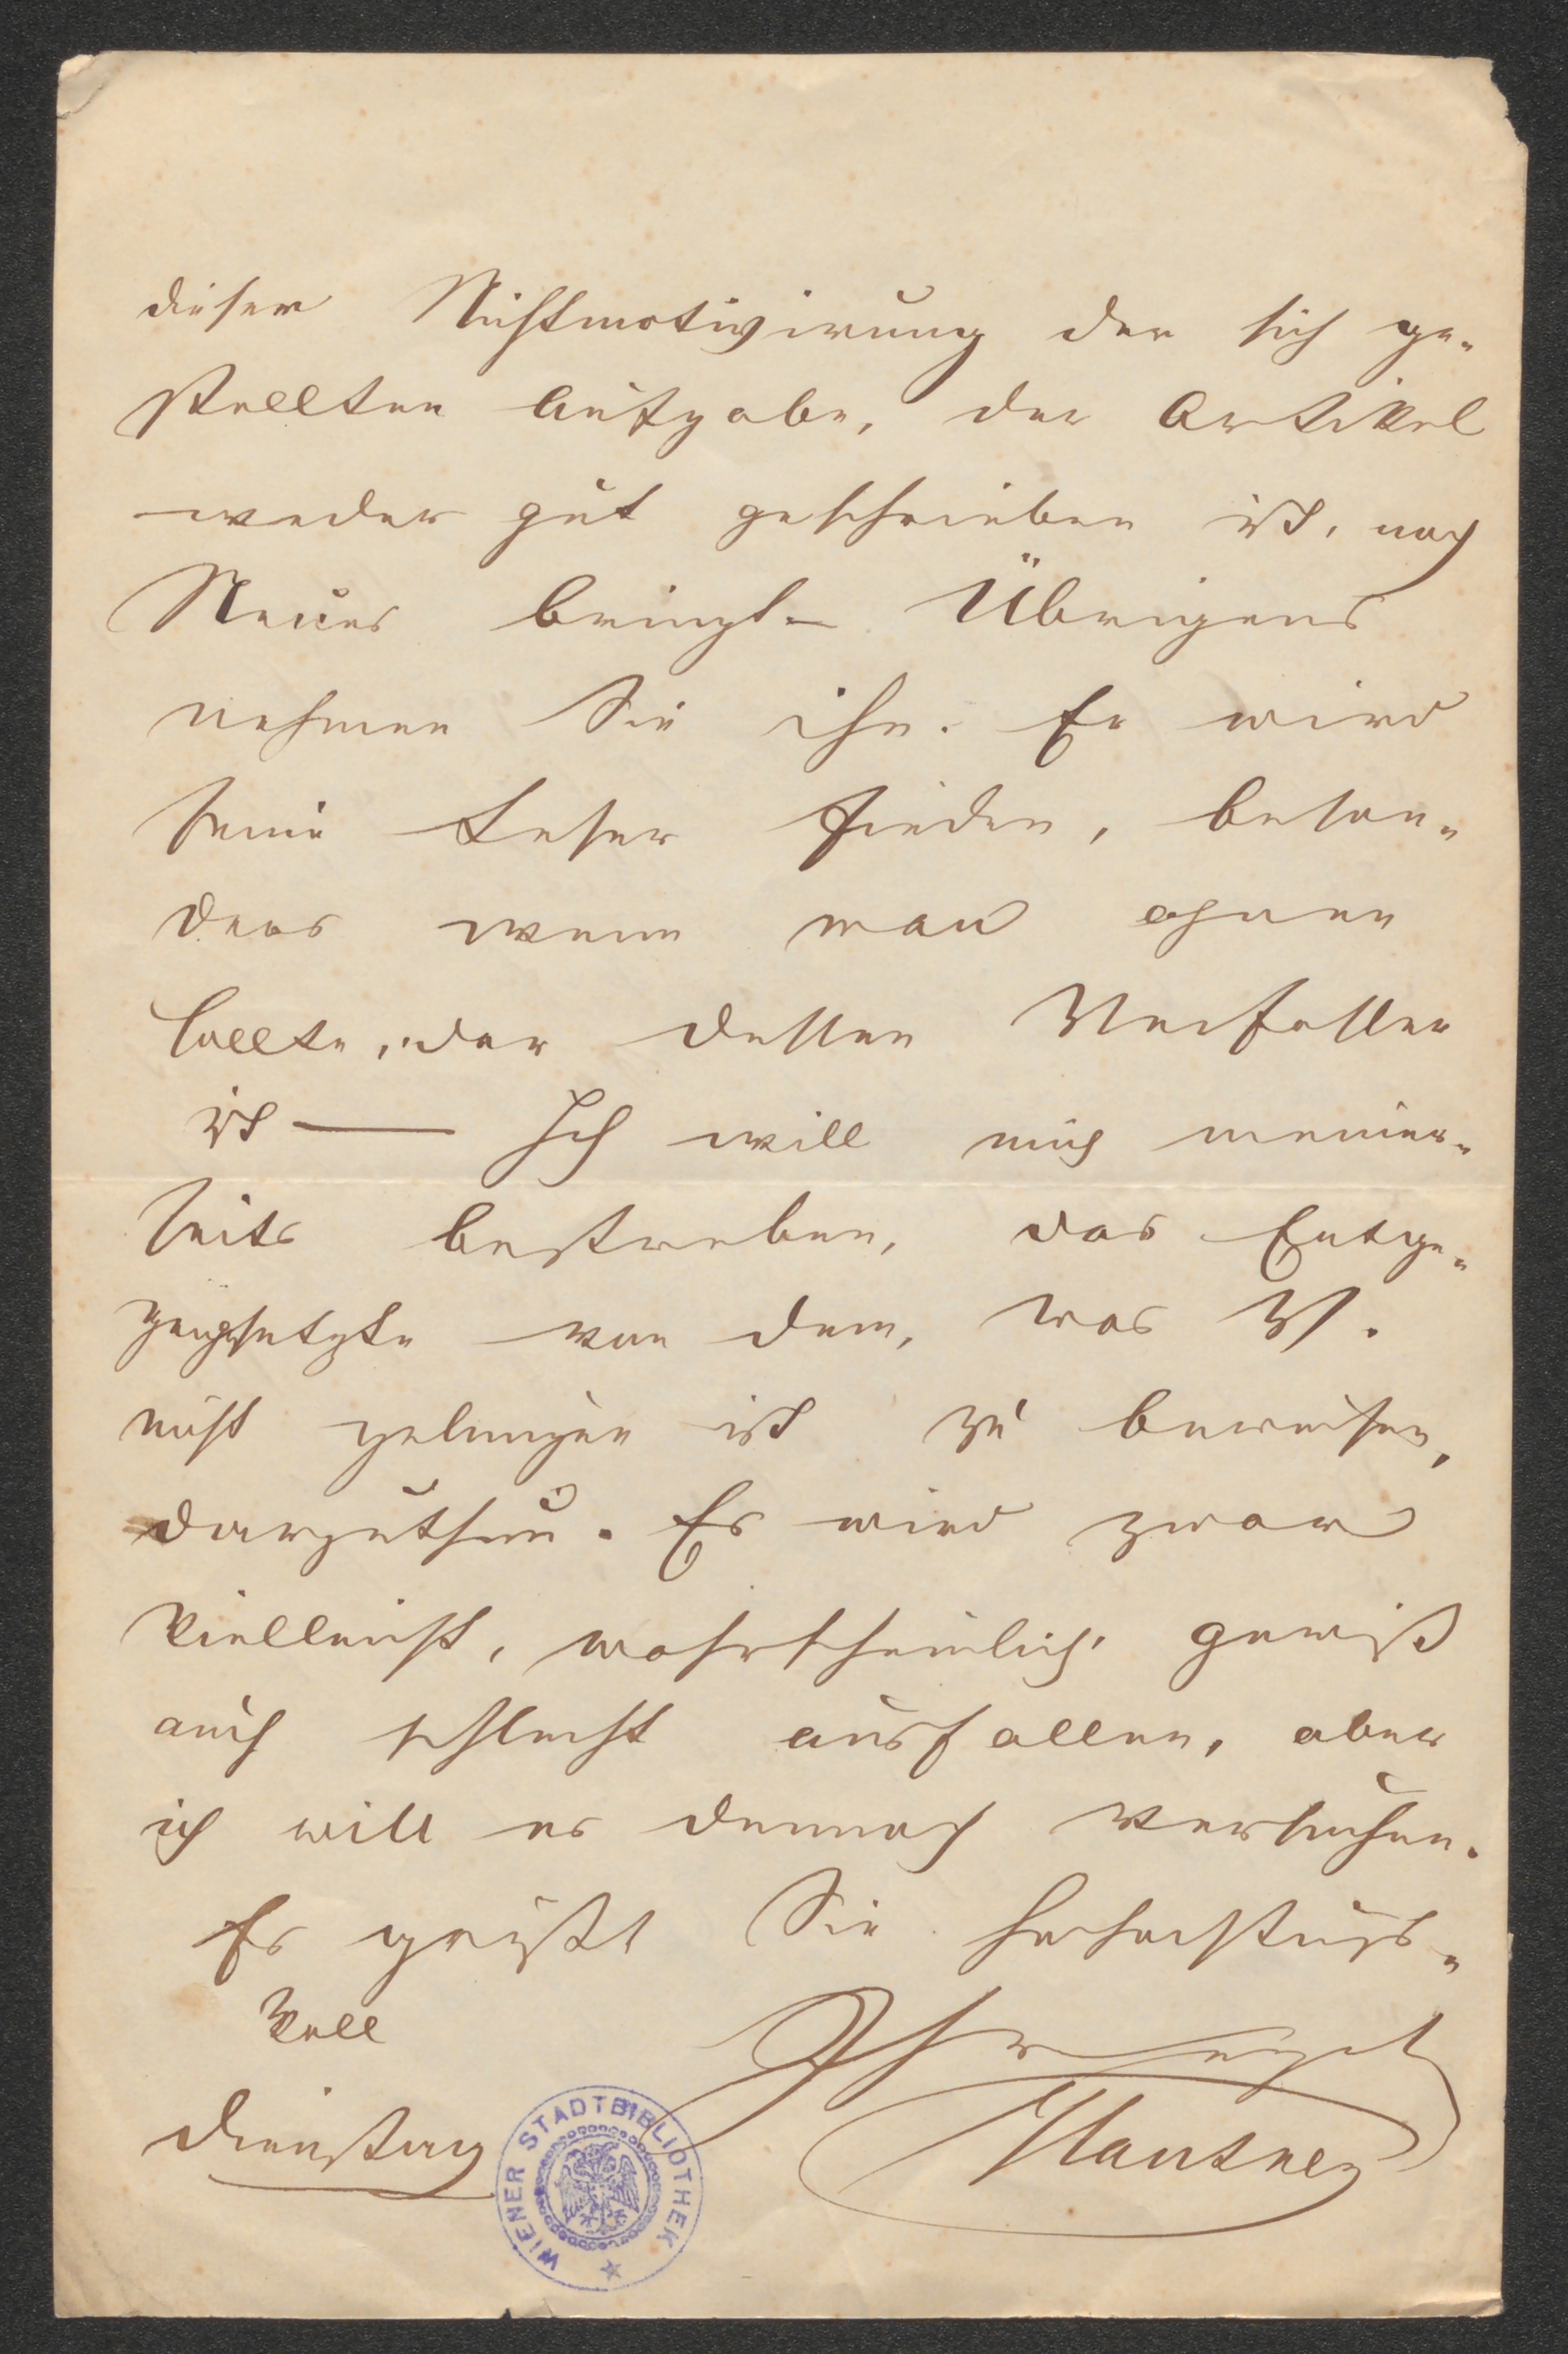 dieser Nichtmotivirung der sich ge-
stellten Aufgabe, der Artikel
weder gut geschrieben ist, noch
Neues bringt – Übrigens
nehmen Sie ihn. Er wird
seine Leser finden, beson-
ders wenn man ahnen
sollte, wer dessen Verfasser
ist — Ich will mich meiner-
seits bestreben, das Entge-
gengesetzte von dem, was V.
nicht gelungen ist zu beweisen,
darzuthun. Es wird zwar
vielleicht, wahrscheinlich, gewiß
auch schlecht ausfallen, aber
ich will es dennoch versuchen.
Es grüßt Sie hochachtungs-
voll
Ihr ergeb
Dienstag
WIENER STADTBIBLIOTHEK